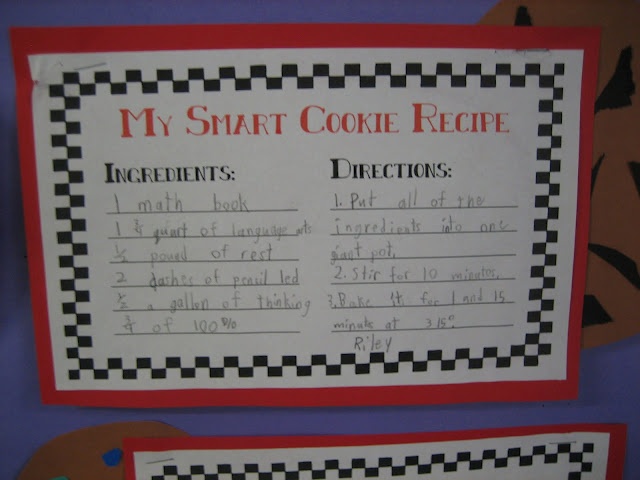 My Smart Cookie Recipe
Ingredients:
1 math book
1 ¾ quart of language arts
½ pound of rest
2 dashes of pencil led
½ a gallon of thinking
¾ of 100%
Directions:
1. Put all of the
ingredients into one
giant pot.
2. Stir for 10 minutes.
3. Bake it for 1 and 15
minute at 315°
Riley